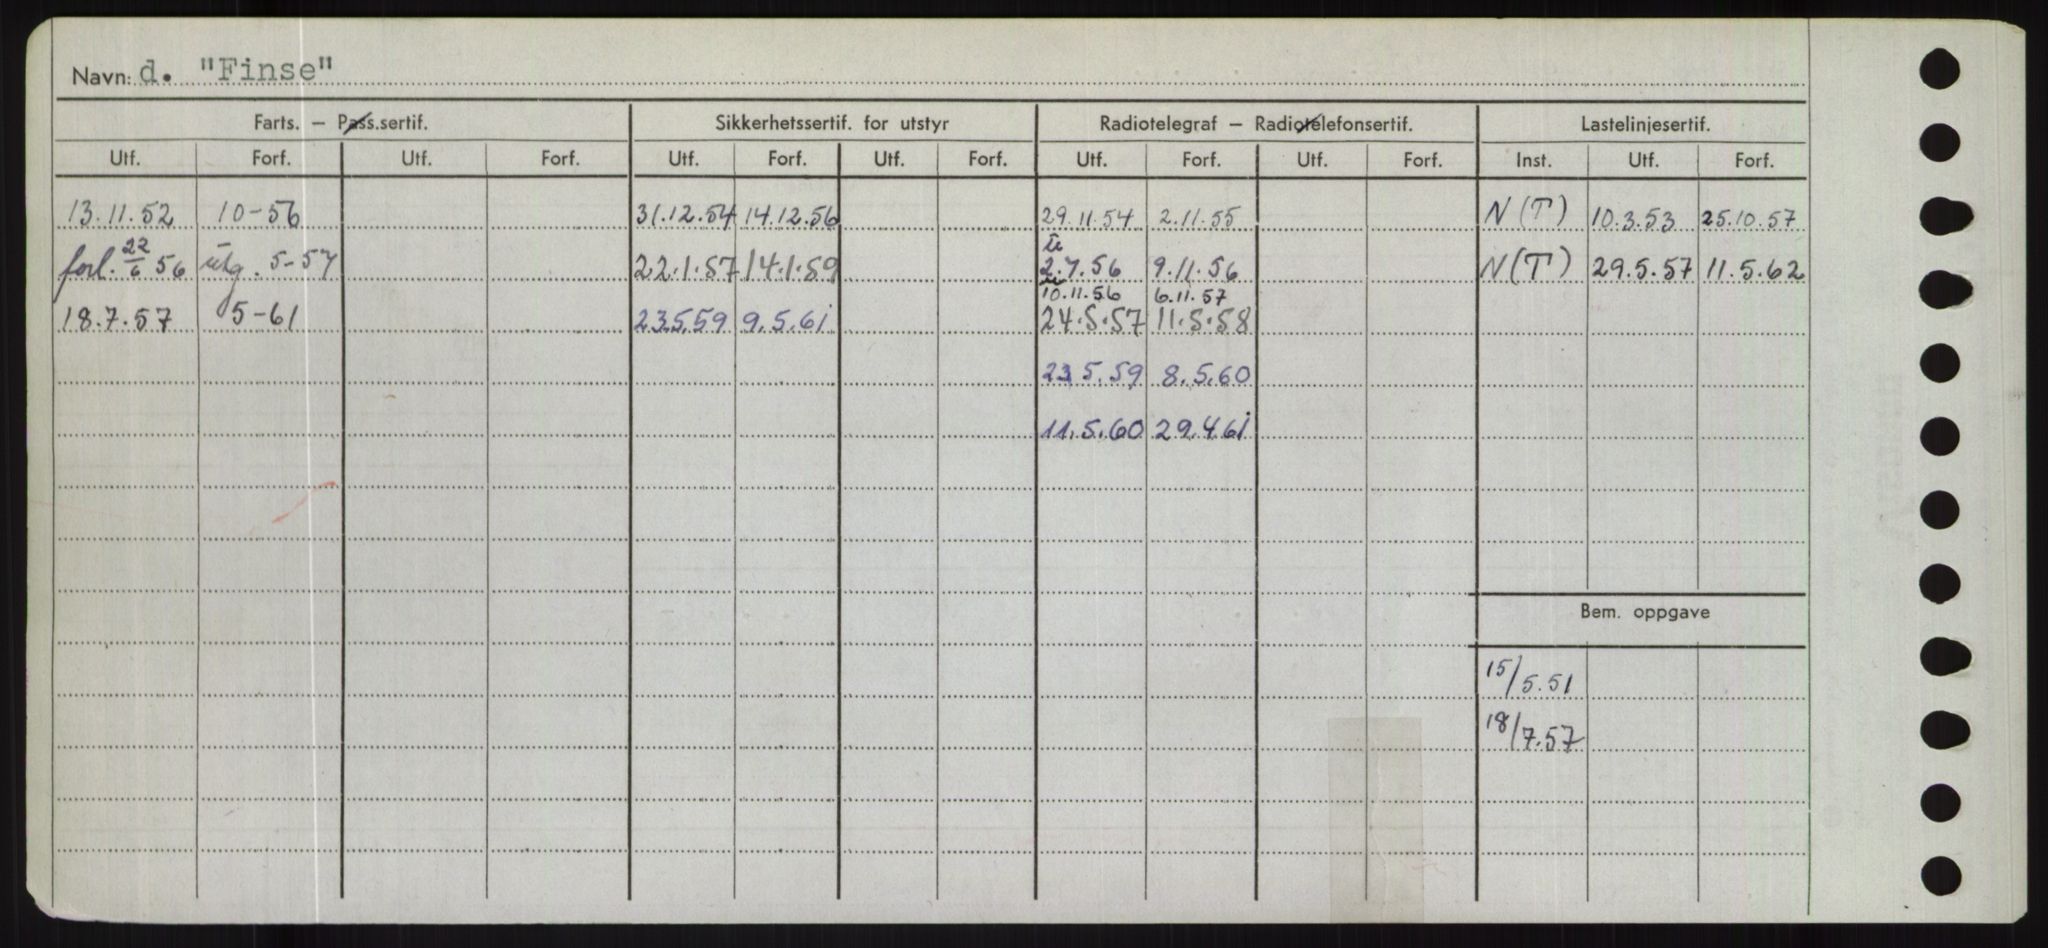 Navn: d. "Finse"
Farts. — Pass.sertif. Sikkerhetssertif. for utstyr Radiotelegraf — Radiotelefonsertif. Lastelinjesertif.
Utf. Forf. Utf. Forf. Utf. Forf. Utf. Forf. Utf. Forf. Utf. Forf. Inst. Utf. Forf.
13.11.52 10-56 31.12.54 14.12.56 29.11.54 2.11.55 N(T) 10.3.53 25.10.57
forl. 22/6 56 utg. 5-57 22.1.57 14.1.59 2.7.56 9.11.56 N(T) 29.5.57 11.5.62
10.11.56 6.11.57
18.7.57 5-61 23.5.59 9.5.61 24.5.57 11.5.58
23.5.59 8.5.60
11.5.60 29.4.61
Bem. oppgave
15/5.51
18/7.57